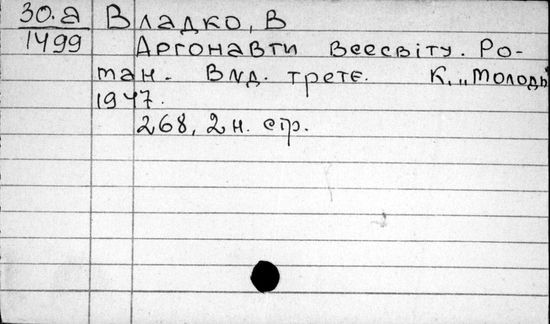 30.а Владко, В
1499 Аргонавти Всесвіту. Ро-
ман. Вид. третє. К. „Молодь"
1947.
268, 2 н. стр.